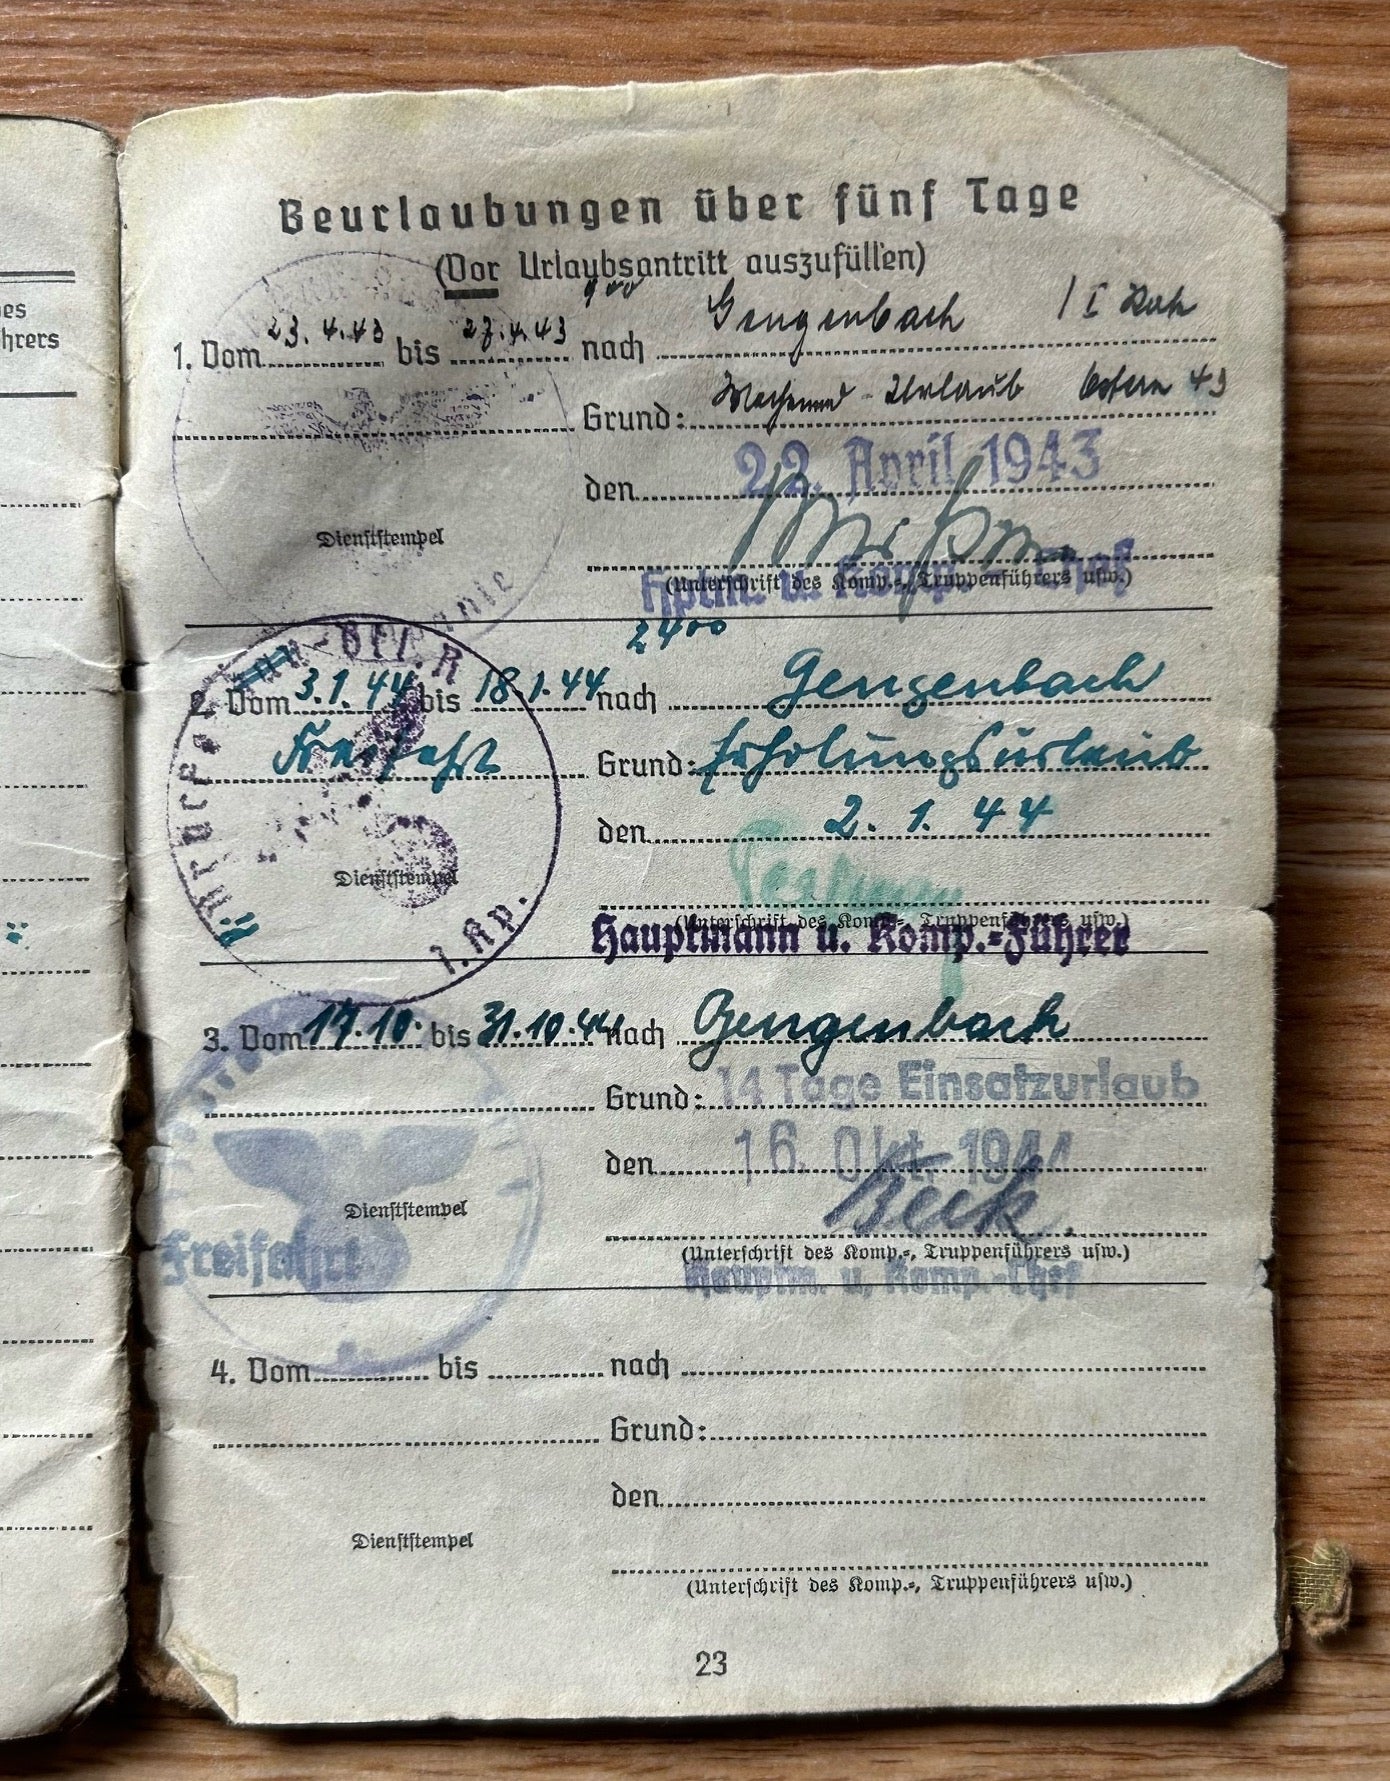 es
hrers
Beurlaubungen über fünf Tage
(Vor Urlaubsantritt auszufüllen)
1. Vom 23.4.43 bis 27.4.43 nach Gengenbach
Grund: Urlaub Ostern 43
den 22. April 1943
Dienststempel
(Unterschrift des Komp.-, Truppenführers usw.)
Hptm. u. Komp.-Chef
24⁰⁰
2. Vom 3.1.44 bis 18.1.44 nach Gengenbach
Freifahrt Grund: Erholungsurlaub
den 2.1.44
Dienststempel
(Unterschrift des Komp.-, Truppenführers usw.)
Hauptmann u. Komp.-Führer
1.Kp.
3. Vom 17.10. bis 31.10.44 nach Gengenbach
Grund: 14 Tage Einsatzurlaub
den 16. Okt. 1944
Beck
Dienststempel
(Unterschrift des Komp.-, Truppenführers usw.)
Freifahrt
Hauptm. u. Komp.-Chef
4. Vom bis nach
Grund:
den
Dienststempel
(Unterschrift des Komp.-, Truppenführers usw.)
23